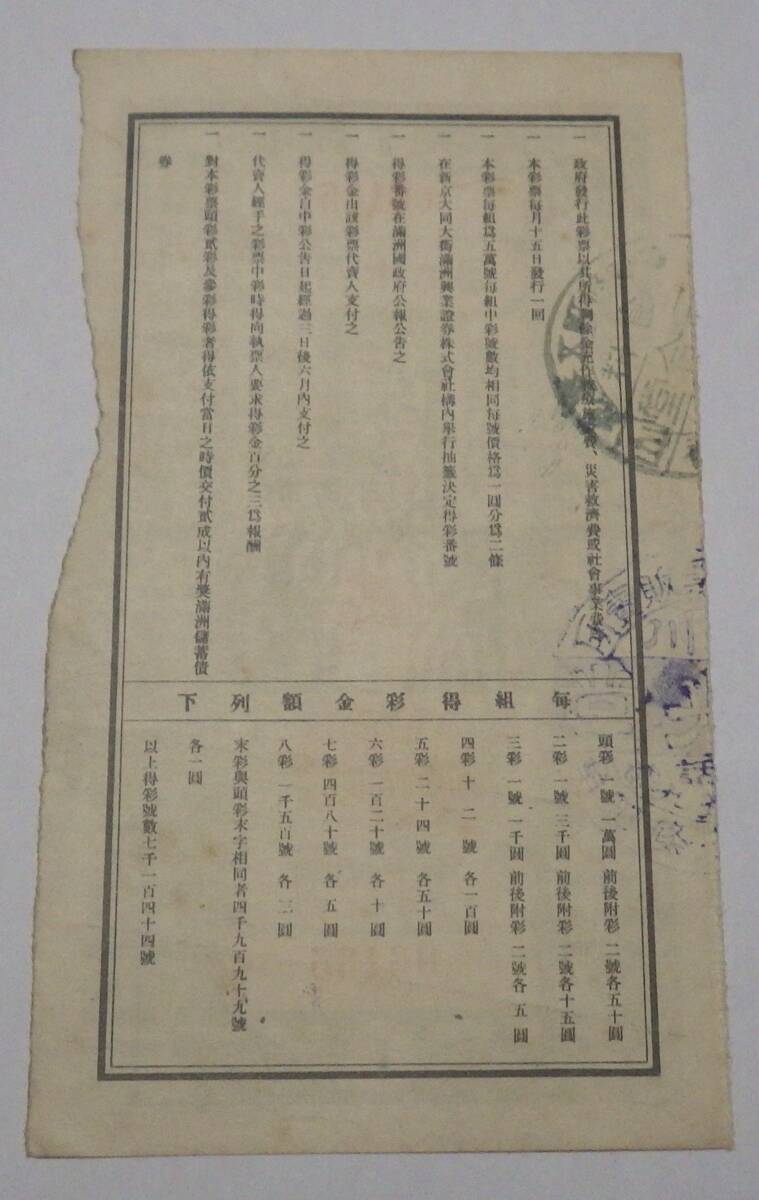 一 政府發行此彩票以其所得 除 充作 費、災害救濟費或社會事業費
一 本彩票每月十五日發行一回
一 本彩票每組爲五萬號每組中彩號數均相同每號價格爲一圓分爲二條
一 在新京大同大街滿洲興業證券株式會社構內舉行抽籤決定得彩番號
一 得彩番號在滿洲國政府公報公告之
一 得彩金由該彩票代賣人支付之
一 得彩金自中彩公告日起經過三日後六月內支付之
一 代賣人經手之彩票中彩時得向執票人要求得彩金百分之三爲報酬
一 對本彩票頭彩貳彩及參彩得彩者得依支付當日之時價交付貳成以內有獎滿洲儲蓄債
券
每組得彩金額列下
頭彩 一號 一萬圓 前後附彩 二號各五十圓
二彩 一號 三千圓 前後附彩 二號各十五圓
三彩 一號 一千圓 前後附彩 二號各五圓
四彩 十二號 各一百圓
五彩 二十四號 各五十圓
六彩 一百二十號 各十圓
七彩 四百八十號 各五圓
八彩 一千五百號 各三圓
末彩與頭彩末字相同者四千九百九十九號
各一圓
以上得彩號數七千一百四十四號